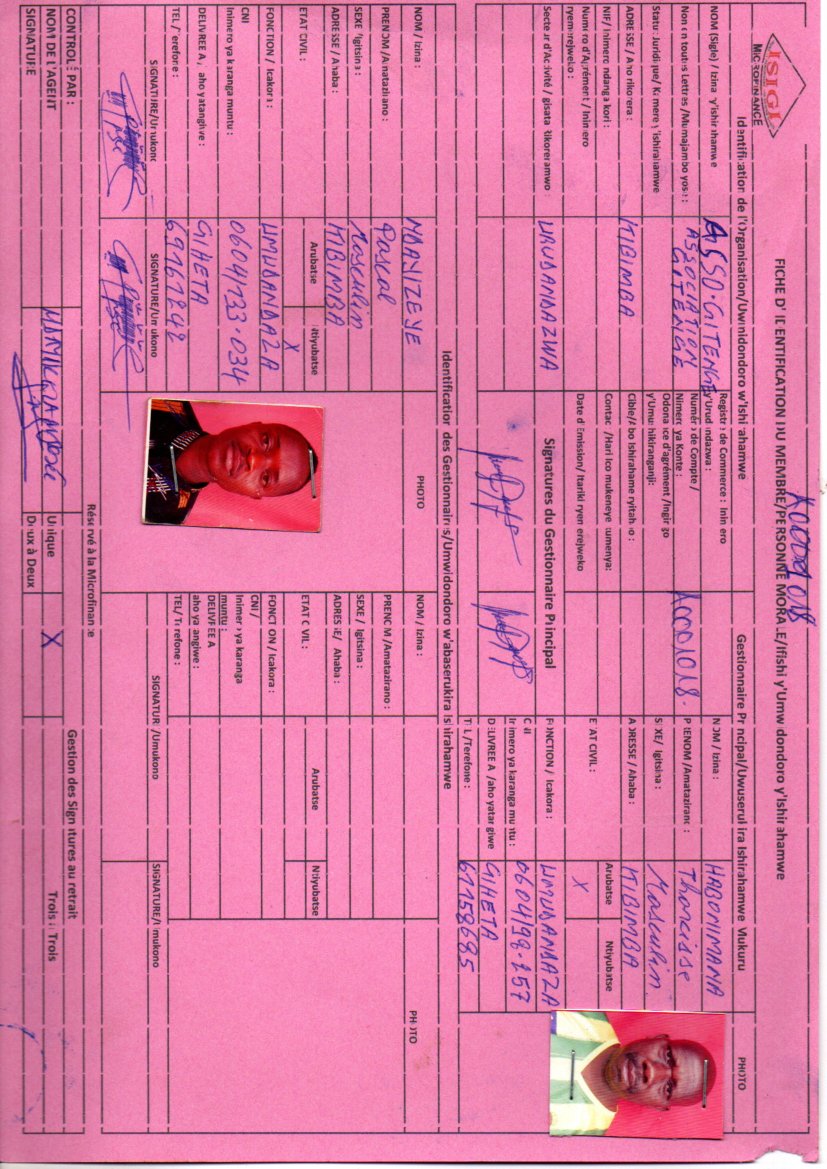 ISIGI
MICROFINANCE
K0001018
FICHE D'IDENTIFICATION DU MEMBRE/PERSONNE MORALE/Ifishi y'Umwidondoro y'Ishirahamwe
Identification de l'Organisation/Uwmidondoro w'Ishirahamwe
Gestionnaire Principal/Uwuserukira Ishirahamwe Mukuru
PHOTO
NOM (Sigle) / Izina ry'ishirahamwe
ASSO.GITENGE
Registre de Commerce : Inimero
y'Urudandazwa :
NOM / Izina :
HABONIMANA
Nom en toutes Lettres /Mumajambo yose :
ASSOCIATION
GITENGE
Numéro de Compte /
Nimero ya Konte :
K0001018.
PRENOM /Amatazirano :
Tharcisse
Statut Juridique/ Kamere y'ishirahamwe
Odonance d'agrément /Ingingo
y'Umushikiranganji:
SEXE/ Igitsina :
Masculin
ADRESSE / Aho rikorera :
KIBIMBA
Cible/Abo Ishirahame ryitaho :
ADRESSE / Ahaba :
KIBIMBA
NIF/ Inimero ndangakori :
Contact /Hari ico mukeneye kumenya:
ETAT CIVIL :
Arubatse
Ntiyubatse
X
Numéro d'Agrément / Inimero
ryemerejweko :
Date d'Emission/ Itariki ryemerejweko
Secteur d'Activité / gisata Rikoreramwo :
URUDANDAZWA
Signatures du Gestionnaire Principal
FONCTION / Icakora :
UMUDANDAZA
CNI
Inimero ya karanga muntu :
0604/98.257
DELIVREE A /aho yatangiwe
GIHETA
TEL /Terefone :
61158685
Identification des Gestionnaires/Umwidondoro w'abaserukira Ishirahamwe
NOM / Izina :
NDAYIZEYE
PHOTO
NOM / Izina :
PHOTO
PRENOM /Amatazirano :
Pascal
PRENOM /Amatazirano :
SEXE /Igitsina :
Masculin
SEXE / Igitsina :
ADRESSE / Ahaba :
KIBIMBA
ADRESSE/ Ahaba :
ETAT CIVIL :
Arubatse
Ntiyubatse
X
ETAT CIVIL :
Arubatse
Ntiyubatse
FONCTION / Icakora :
UMUDANDAZA
FONCTION / Icakora :
CNI
Inimero ya karanga muntu :
0604/133.034
CNI /
Inimero ya karanga
muntu :
DELIVREE A / aho yatangiwe :
GIHETA
DELIVREE A
aho yatangiwe :
TEL / Terefone :
69161242
TEL/ Terefone :
SIGNATURE/Umukono
SIGNATURE/Umukono
SIGNATURE /Umukono
SIGNATURE/Umukono
Réservé à la Microfinance
Gestion des Signatures au retrait
CONTROLÉ PAR :
NOM DE L'AGENT
SIGNATURE
Unique
X
Trois à Trois
Deux à Deux